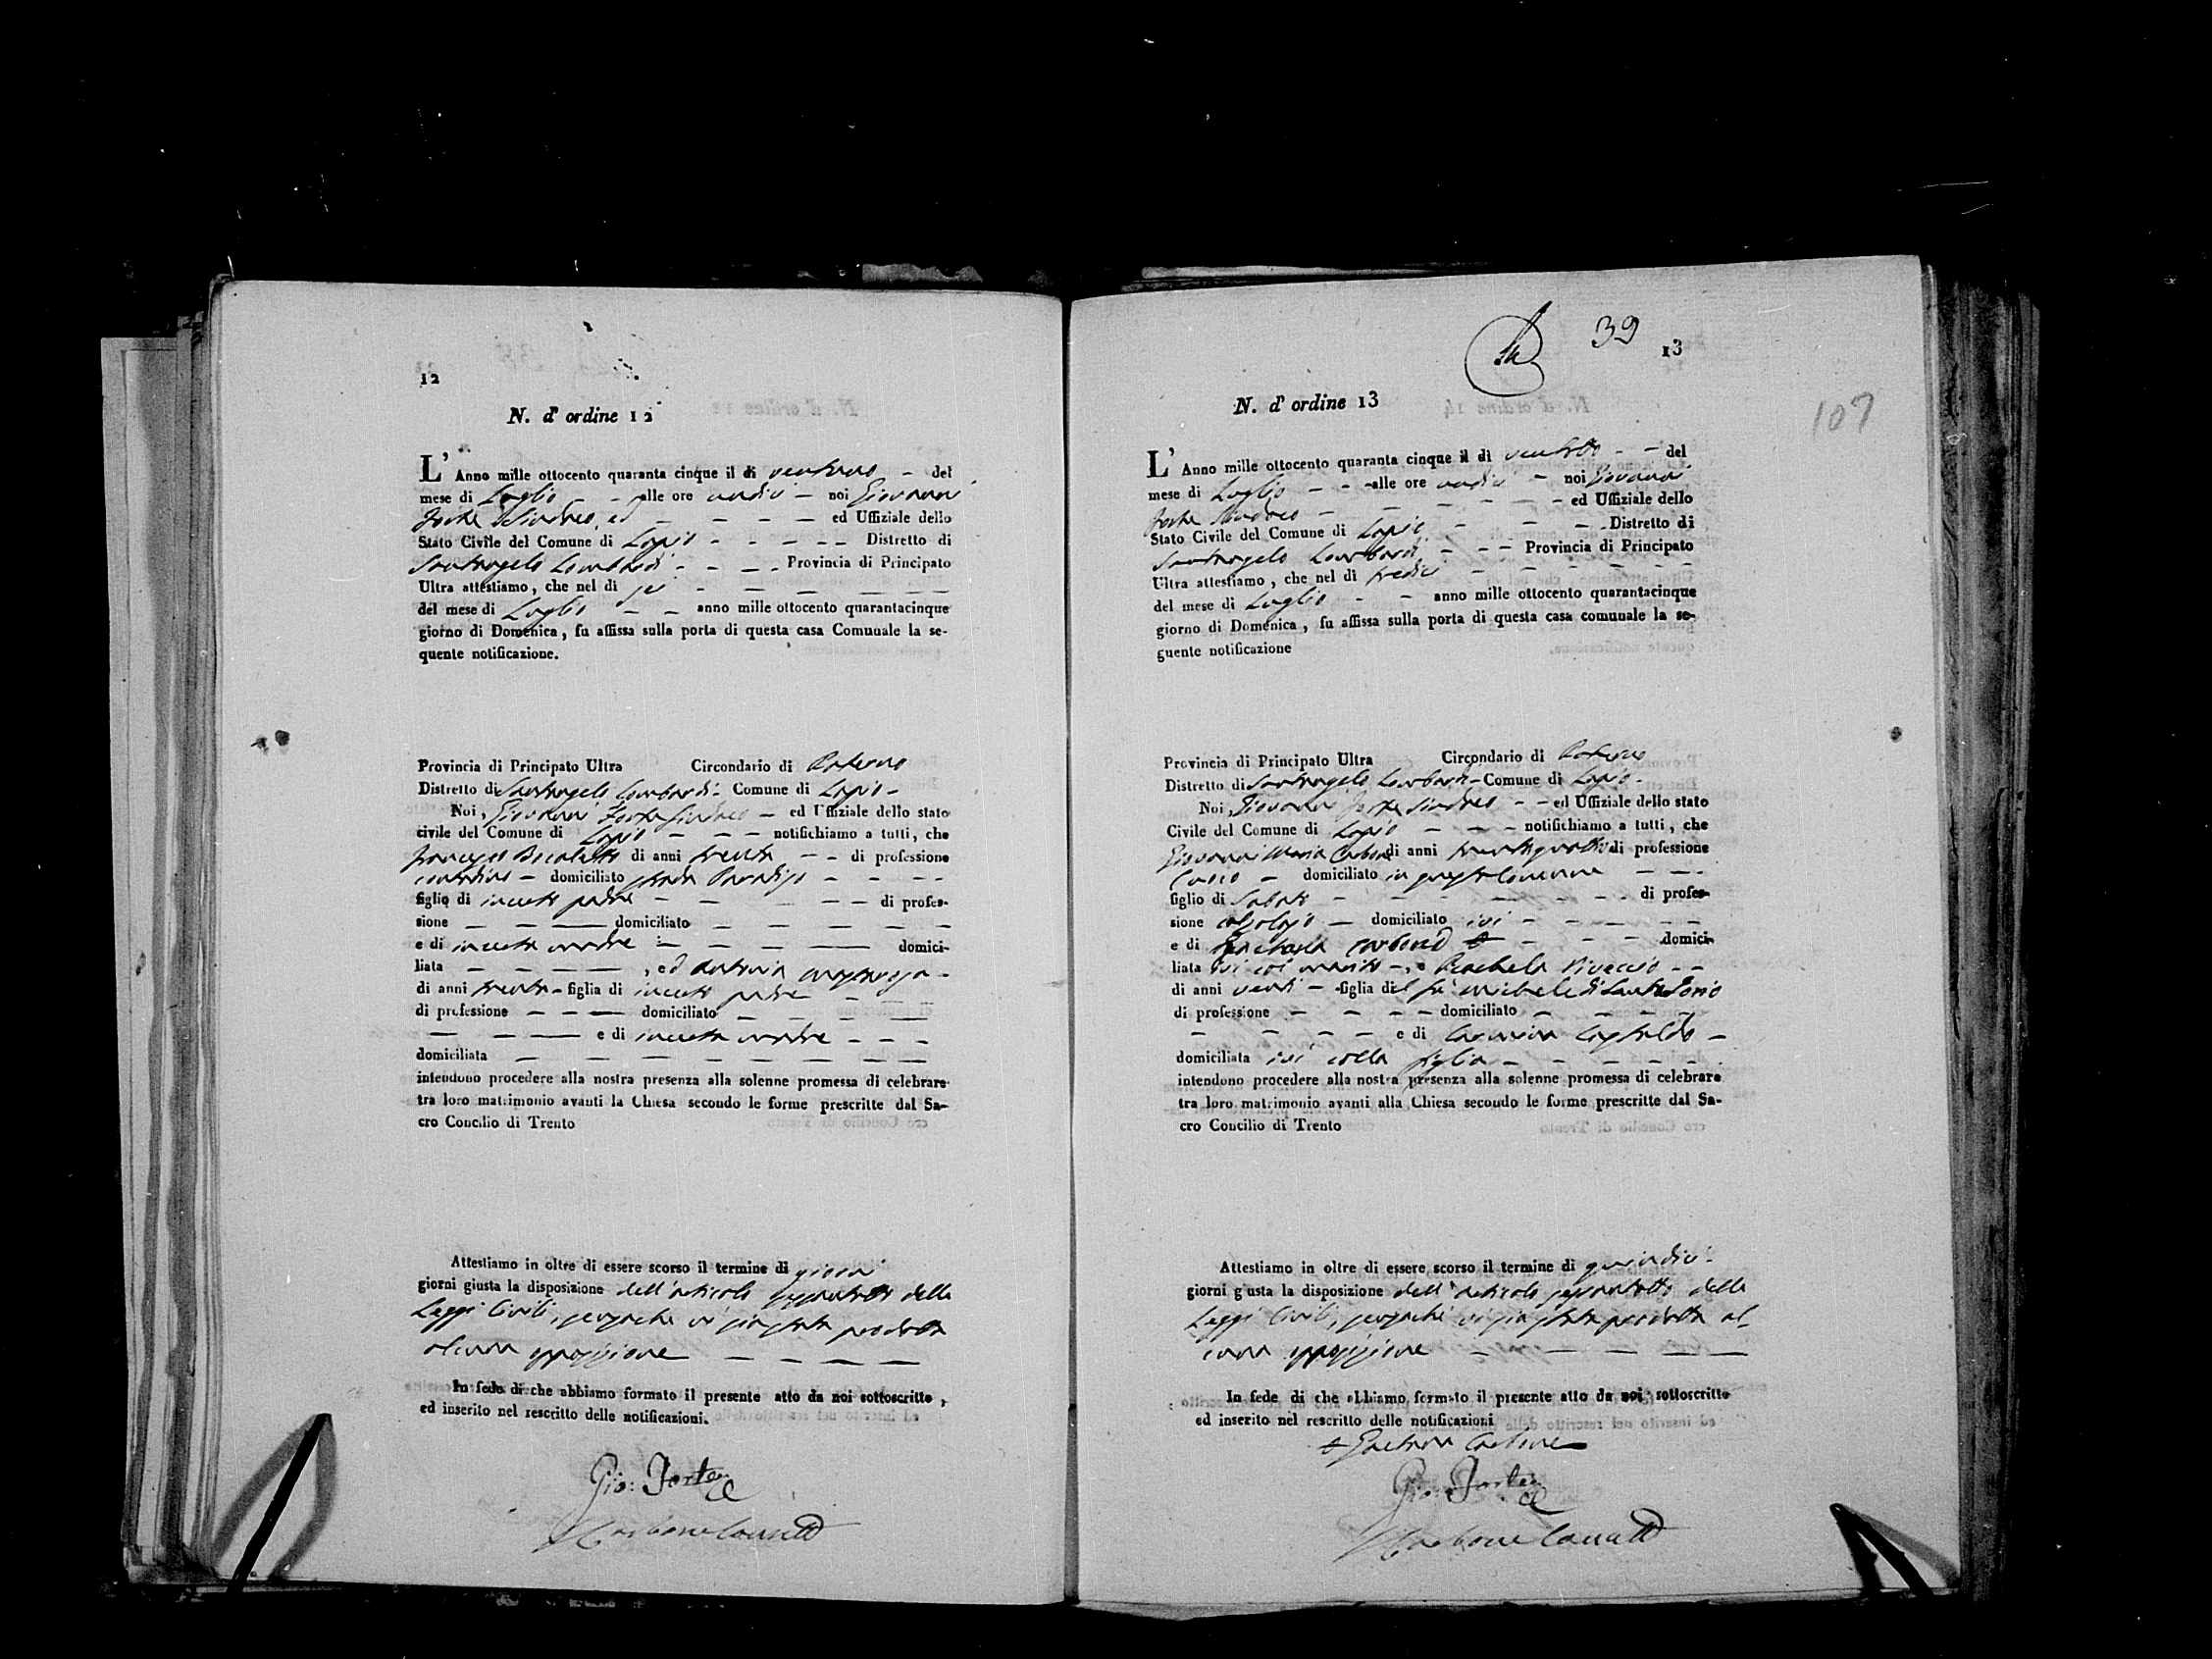 12
N. d' ordine 12
L' Anno mille ottocento quaranta cinque il di ventuno - del
mese di Luglio - - alle ore undici - noi Giovanni
Forte Sindaco, ed - - - - ed Uffiziale dello
Stato Civile del Comune di Lapio - - - - - Distretto di
Santangelo Lombardi - - - - Provincia di Principato
Ultra attestiamo, che nel di sei - - - - - -
del mese di Luglio - - anno mille ottocento quarantacinque
giorno di Domenica, fu affissa sulla porta di questa casa Comunale la se-
quente notificazione.
Provincia di Principato Ultra Circondario di Paterno
Distretto di Santangelo Lombardi - Comune di Lapio -
Noi, Giovanni Forte Sindaco - ed Uffiziale dello stato
civile del Comune di Lapio - - - notifichiamo a tutti, che
Francesco di anni trenta - - di professione
contadino - domiciliato strada Paradiso - - - -
figlio di incerto padre - - - - - di profes-
sione - - - domiciliato - - - - - -
e di incerta madre - - - - domici-
liata - - - - , ed Antonia
di anni trenta - figlia di incerto padre - - -
di professione - - - domiciliato - - - - -
- - - - e di incerta madre - - -
domiciliata - - - - - - - -
intendono procedere alla nostra presenza alla solenne promessa di celebrare
tra loro matrimonio avanti la Chiesa secondo le forme prescritte dal Sa-
cro Concilio di Trento
Attestiamo in oltre di essere scorso il termine di
giorni giusta la disposizione dell'articolo sessantotto delle
Leggi Civili, perochè vi sia stata prodotta
alcuna opposizione - - - -
In fede di che abbiamo formato il presente atto da noi sottoscritto,
ed inserito nel rescritto delle notificazioni.
Gio: Forte
Carbone
39
13
107
N. d' ordine 13
L' Anno mille ottocento quaranta cinque il di ventotto - - del
mese di Luglio - - - alle ore undici - noi Giovanni
Forte Sindaco - - - - - - ed Uffiziale dello
Stato Civile del Comune di Lapio - - - Distretto di
Santangelo Lombardi - - - Provincia di Principato
Ultra attestiamo, che nel di tredici - - - - - -
del mese di Luglio - - anno mille ottocento quarantacinque
giorno di Domenica, fu affissa sulla porta di questa casa comunale la se-
guente notificazione
Provincia di Principato Ultra Circondario di Paterno
Distretto di Santangelo Lombardi - Comune di Lapio -
Noi, Giovanni Forte Sindaco - - ed Uffiziale dello stato
Civile del Comune di Lapio - - - notifichiamo a tutti, che
Giovanni Maria Carbone di anni trentaquattro di professione
- domiciliato in questo Comune - - -
figlio di Sabato - - - - - - di profes-
sione calzolajo - domiciliato ivi - - - - -
e di Carbone - - - domici-
liata ivi col marito - , e Rachela - -
di anni venti - figlia del fu Michele di
di professione - - - - domiciliato - - - - -
- - - - e di Carmina Castaldo -
domiciliata ivi colla figlia - - - - - -
intendono procedere alla nostra presenza alla solenne promessa di celebrare
tra loro matrimonio avanti alla Chiesa secondo le forme prescritte dal Sa-
cro Concilio di Trento
Attestiamo in oltre di essere scorso il termine di quindici
giorni giusta la disposizione dell'articolo sessantotto delle
Leggi Civili, perochè vi sia stata prodotta al-
cuna opposizione - - - - -
In fede di che abbiamo formato il presente atto da noi sottoscritto
ed inserito nel rescritto delle notificazioni
+ Gaetana Carbone
Gio: Forte
Carbone